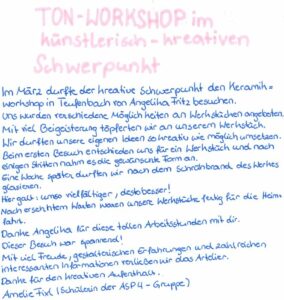 TON-WORKSHOP im
künstlerisch-kreativen
Schwerpunkt
Im März durfte der kreative Schwerpunkt den Keramik=
workshop in Teufenbach von Angelika Fritz besuchen.
Uns wurden verschiedene Möglichkeiten an Werkstücken angeboten.
Mit viel Begeisterung töpferten wir an unserem Werkstück.
Wir durften unsere eigenen Ideen so kreativ wie möglich umsetzen.
Beim ersten Besuch entschieden uns für ein Werkstück und nach
einigen Stritten nahm es die gewünschte Form an.
Eine Woche später durften wir nach dem Schrühbrand des Werkes
glasieren.
Hier galt: umso vielfältiger, desto besser!
Nach ersehntem Warten waren unsere Werkstücke fertig für die Heim
fahrt.
Danke Angelika für diese tollen Arbeitsstunden mit dir.
Dieser Besuch war spannend!
Mit viel Freude, gestalterischen Erfahrungen und zahlreichen
interessanten Informationen verließen wir das Atelier.
Danke für den kreativen Aufenthalt.
Amelie Fixl (Schülerin der ASP4-Gruppe)